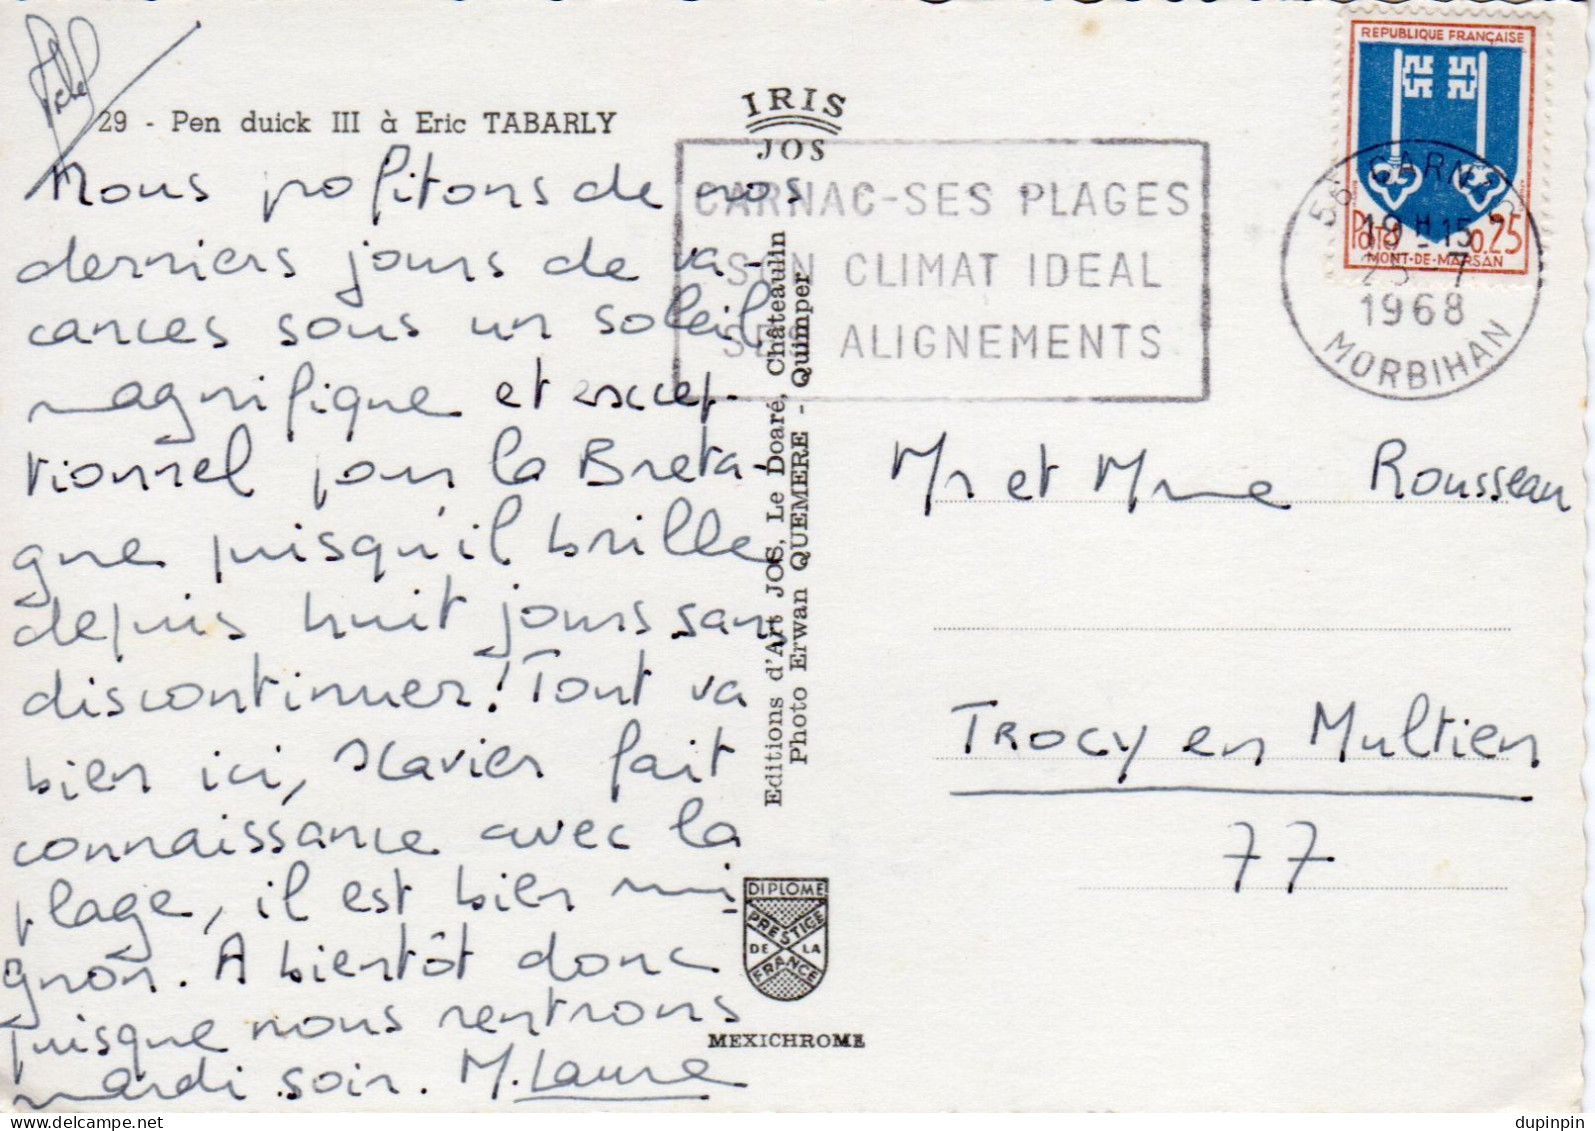 29 - Pen duick III à Eric TABARLY
Nous profitons de nos
derniers jours de va-
cances sous un soleil
magnifique et excep-
tionnel pour la Breta-
gne puisqu'il brille
depuis huit jours sans
discontinuer! Tout va
bien ici, Xavier fait
connaissance avec la
plage, il est bien mi
gnon. A bientôt donc
puisque nous rentrons
mardi soir. M. Laure
IRIS
JOS
Editions d'Art JOS, Le Doaré, Châteaulin
Photo Erwan QUEMERE - Quimper
DIPLOME
PRESTIGE
DE LA
FRANCE
MEXICHROME
CARNAC-SES PLAGES
SON CLIMAT IDEAL
SES ALIGNEMENTS
REPUBLIQUE FRANÇAISE
Postes 0.25
MONT-DE-MARSAN
56 CARNAC
19 H 15
25 - 7
1968
MORBIHAN
Mr et Mme Rousseau
TROCY en Multien
77
dupinpin